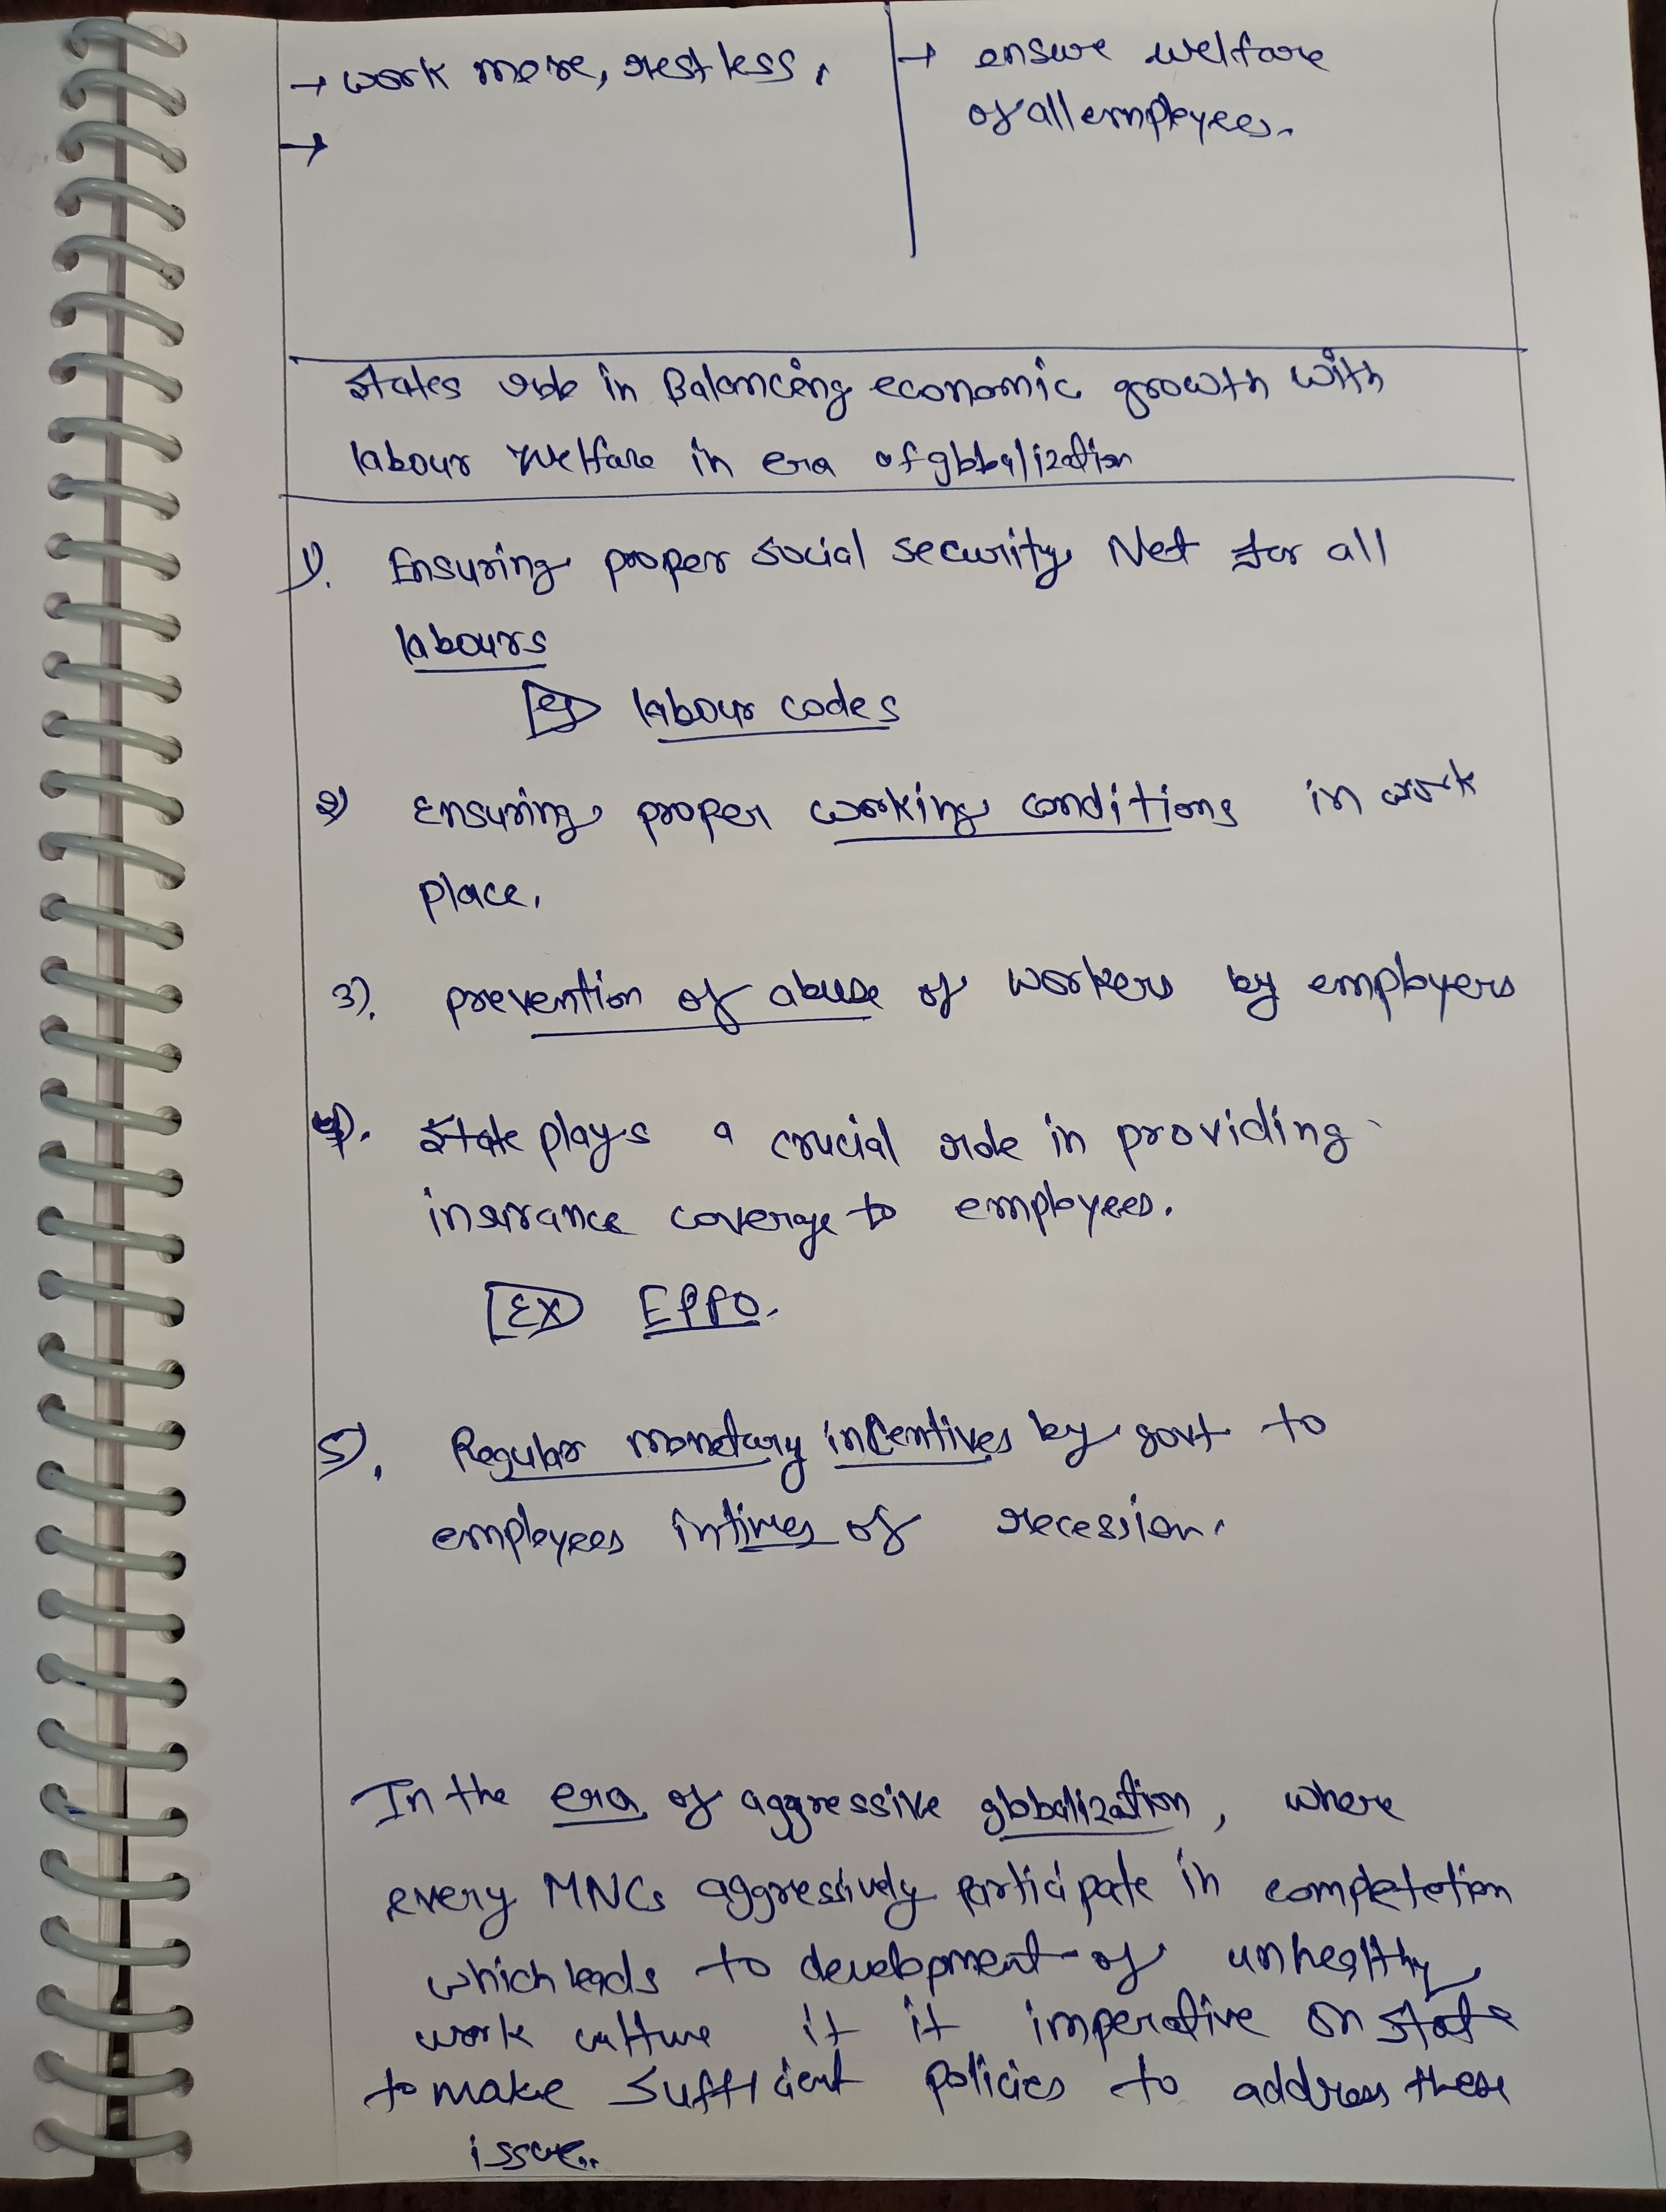 → work more, rest less,
→
→ ensure welfare
of all employees.
States role in Balancing economic growth with
labour welfare in era of globalization
1). Ensuring proper social security Net for all
labours
eg labour codes
2) Ensuring proper working conditions in work
place.
3). prevention of abuse of workers by employers
4). State plays a crucial role in providing
insurance coverge to employees.
EX EPFO.
5). Regular monetary incentives by govt to
employees in times of recession.
In the era of aggressive globalization, where
every MNCs aggressively participate in completetion
which leads to development of unhealthy
work culture it it imperative on state
to make sufficient policies to address these
issue..